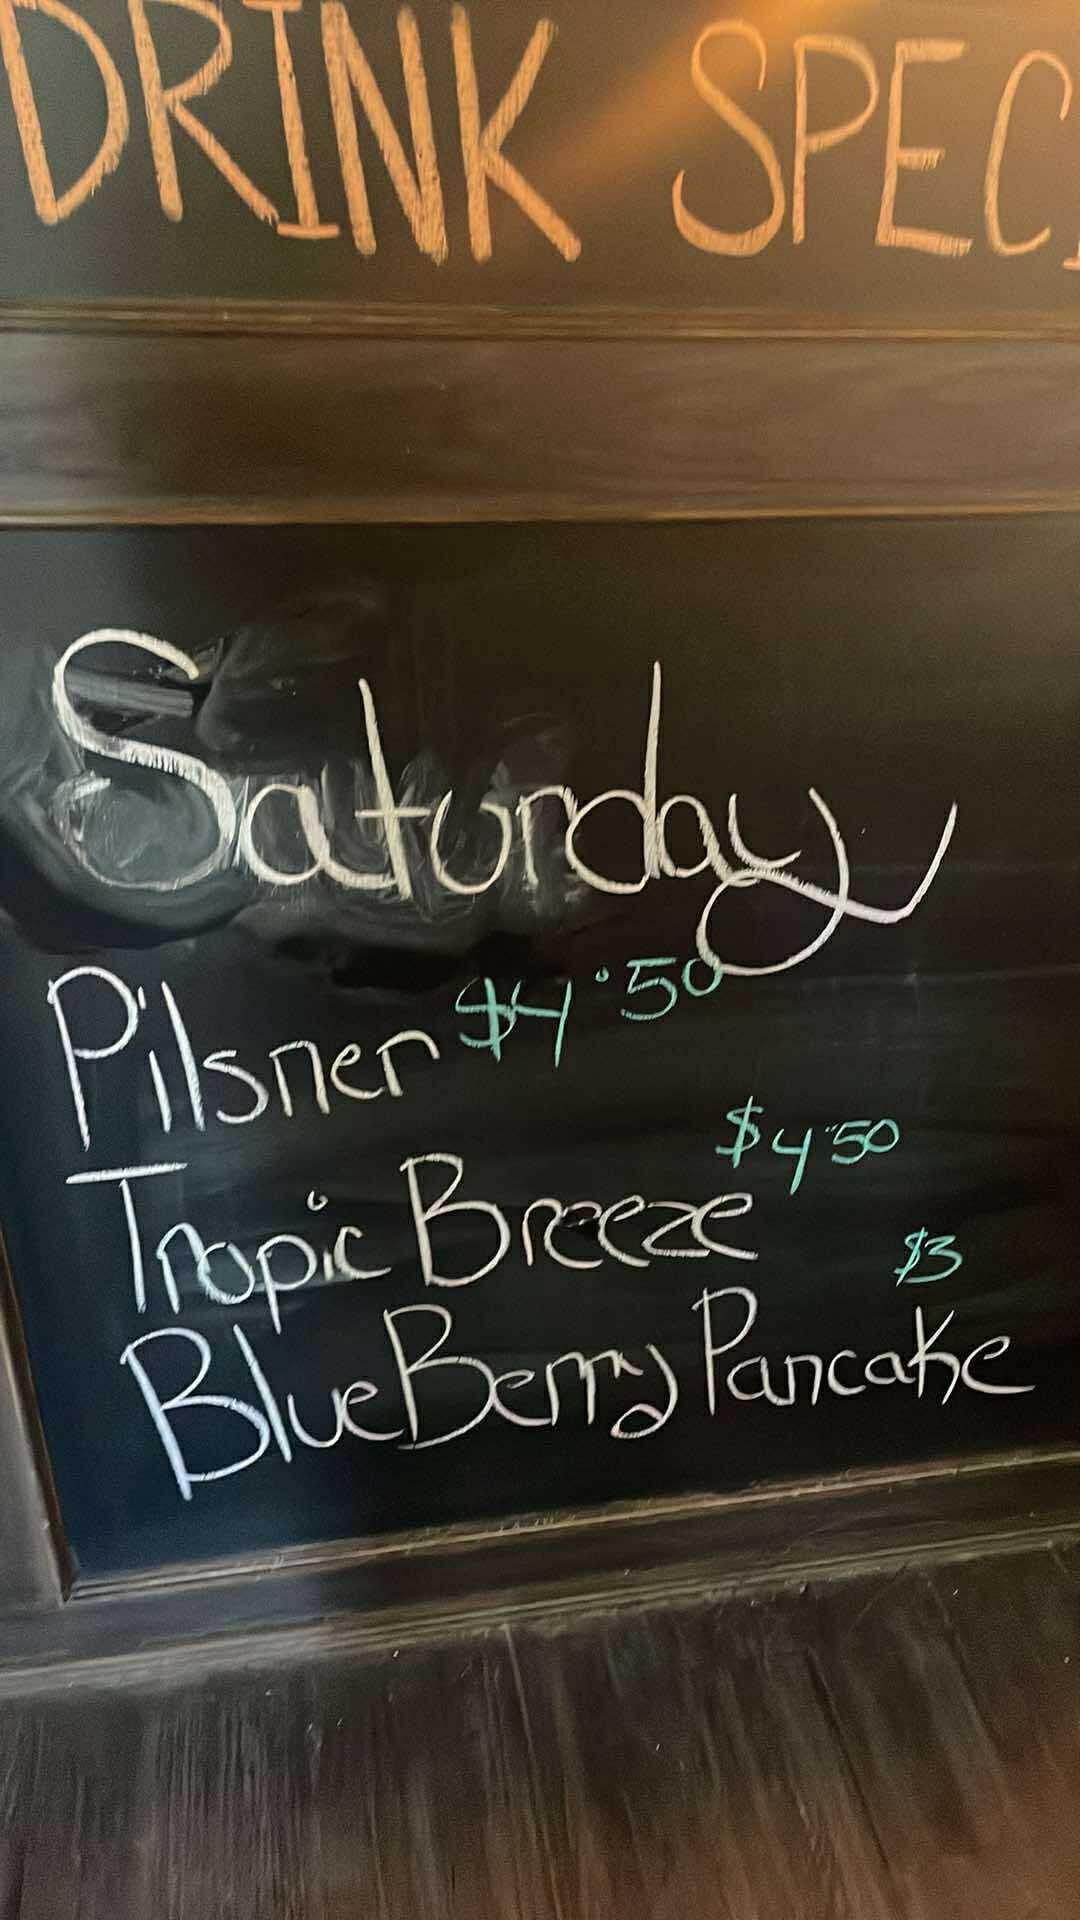 DRINK SPECI
Saturday
Pilsner $4.50
Tropic Breeze $4.50
BlueBerry Pancake $3